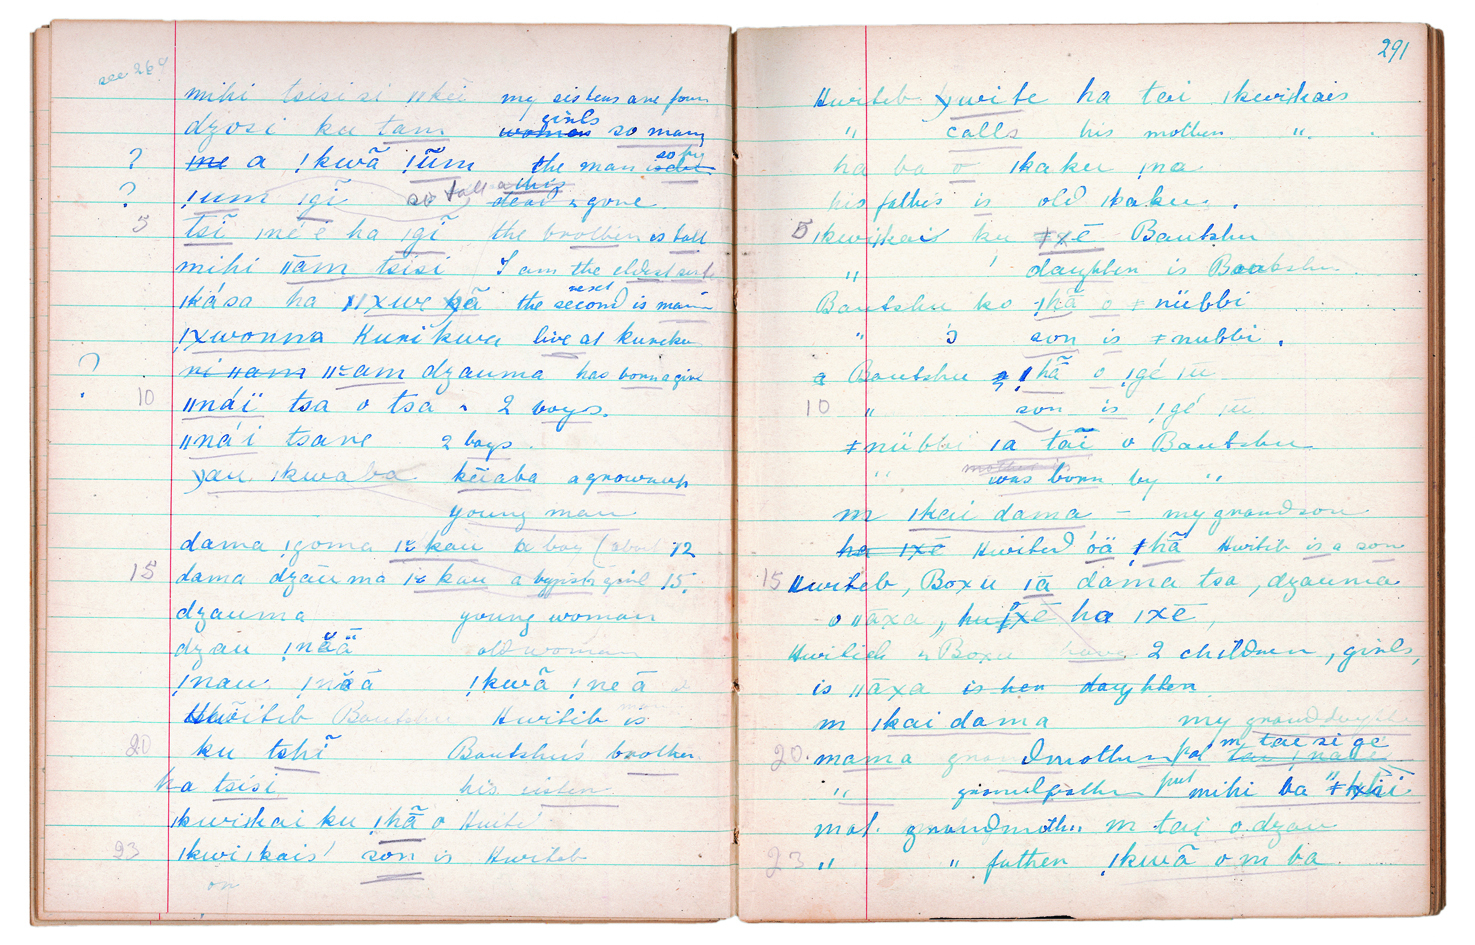 see 264
mihi tsisi si ǁkei my sisters are four
dzosi ku tam women girls so many
? me a ǃkwã ǃũm the man is so by
? ǃum ǀgĩ so tall a this dead & gone
5 tsĩ ǀné é ha ǀgĩ the brother is tall
mihi ǁãm tsisi I am the eldest sister
ǀkása ha ǁxwe kã the second next is
ǃxwonna Kurikwa live at kureku
? ni ǁam ǁam dzauma has born a give
10 ǁnáï tsa o tsa 2 boys.
ǁná'i tsane 2 boys.
yau ǀkwaba kēiaba a grownup
young man
dama ǀgoma kau a boy (about 12
15 dama dzãuma kau a girl 15.
dzauma young woman
dzáu ǃnãã old woman
ǃnau ǃnãá ǃkwã ǃneã
Hwitib Bautshu Hwitib is
20 ku tshĩ Bautshu's brother
ha tsisi his sister
ǀkwiǀkai ku ǀhã o Hwitib
23 ǀkwiǀkais' son is Hwiteb
on
291
Hwiteb ywite ha tai ǀkwiǀkais
" calls his mother ".
ha ba o ǀkaku ǀna
his father is old ǀkaku.
5 ǀkwiǀkais ku ǂxẽ Bautshu
" ' daughter is Bautshu
Bautshu ko ǀhã o ǂnübbi
" 's son is ǂnubbi.
a Bautshu ǀhã o ǀgé ǀu
10 " son is ǀgé ǀu
ǂnübbi ǀa tãi o Bautshu
" mother is was born by "
m ǀkai dama – my grandson
ha ǀxẽ Hwiteb óä ǀhã Hwitib is a son
15 Hwiteb, Boxu ǀã dama tsa, dzauma
o ǁãxa, hu ǀxẽ ha ǀxẽ,
Hwitieb & Boxu have 2 children, girls,
is ǁãxa is her daughter.
m ǀkai dama my
20. mama grandmother pat m tae si gé
" grandfather pat mihi ba
mat. grandmother m tai o dzau
23 " " father ǀkwã o m ba